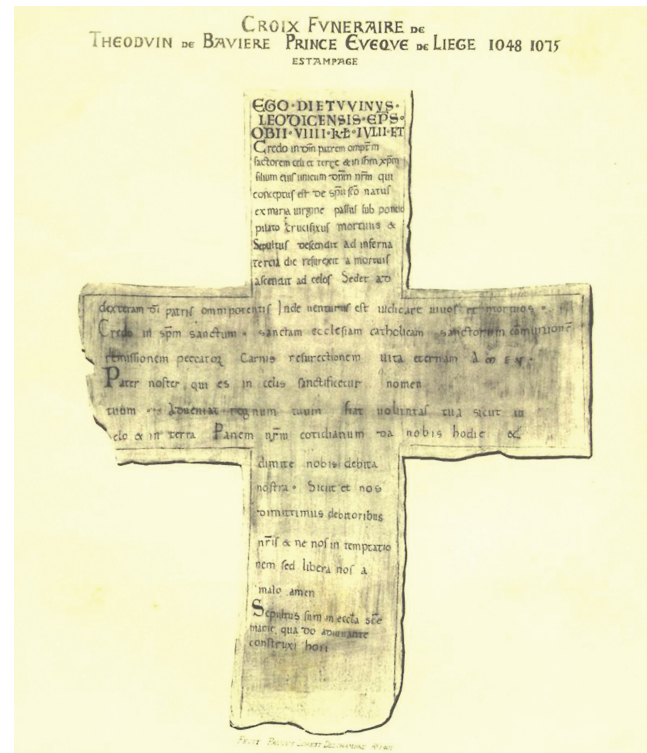 CROIX FVNERAIRE DE
THEODVIN DE BAVIERE PRINCE EVEQVE DE LIEGE 1048 1075
ESTAMPAGE
EGO·DIETVVINVS·
LEODICENSIS·EP̄S·
OBII·VIIII·kł·IVLII·ET
Credo in dm̄ patrem omp̄tm
factorem celi et terrę & in ihm xp̄m
filium eius unicum dn̄m nr̄m qui
conceptus est de spū sc̄o natus
ex maria uirgine passus sub pontio
pilato crucifixus mortuus &
Sepultus descendit ad inferna
tercia die resurexit a mortuis
ascendit ad celos Sedet ad
dexteram dī patris omnipotentis Inde uenturus est iudicare uiuos et mortuos·
Credo in spm̄ sanctum· sanctam ecclesiam catholicam sanctorum cōmunionē
remissionem peccatoꝝ Carnis resurectionem uita eternam AMEN·
Pater noster qui es in celis sanctificetur nomen
tuum Adueniat regnum tuum fiat uoluntas tua sicut in
celo & in terra Panem nr̄m cotidianum da nobis hodie &
dimite nobis debita
nostra· Sicut et nos
dimittimus debitoribus
nr̄is & ne nos in temptatio
nem sed libera nos a
malo amen
Sepultus sum in eccła sc̄e
marie, qua do adiuuante
construxi hoii